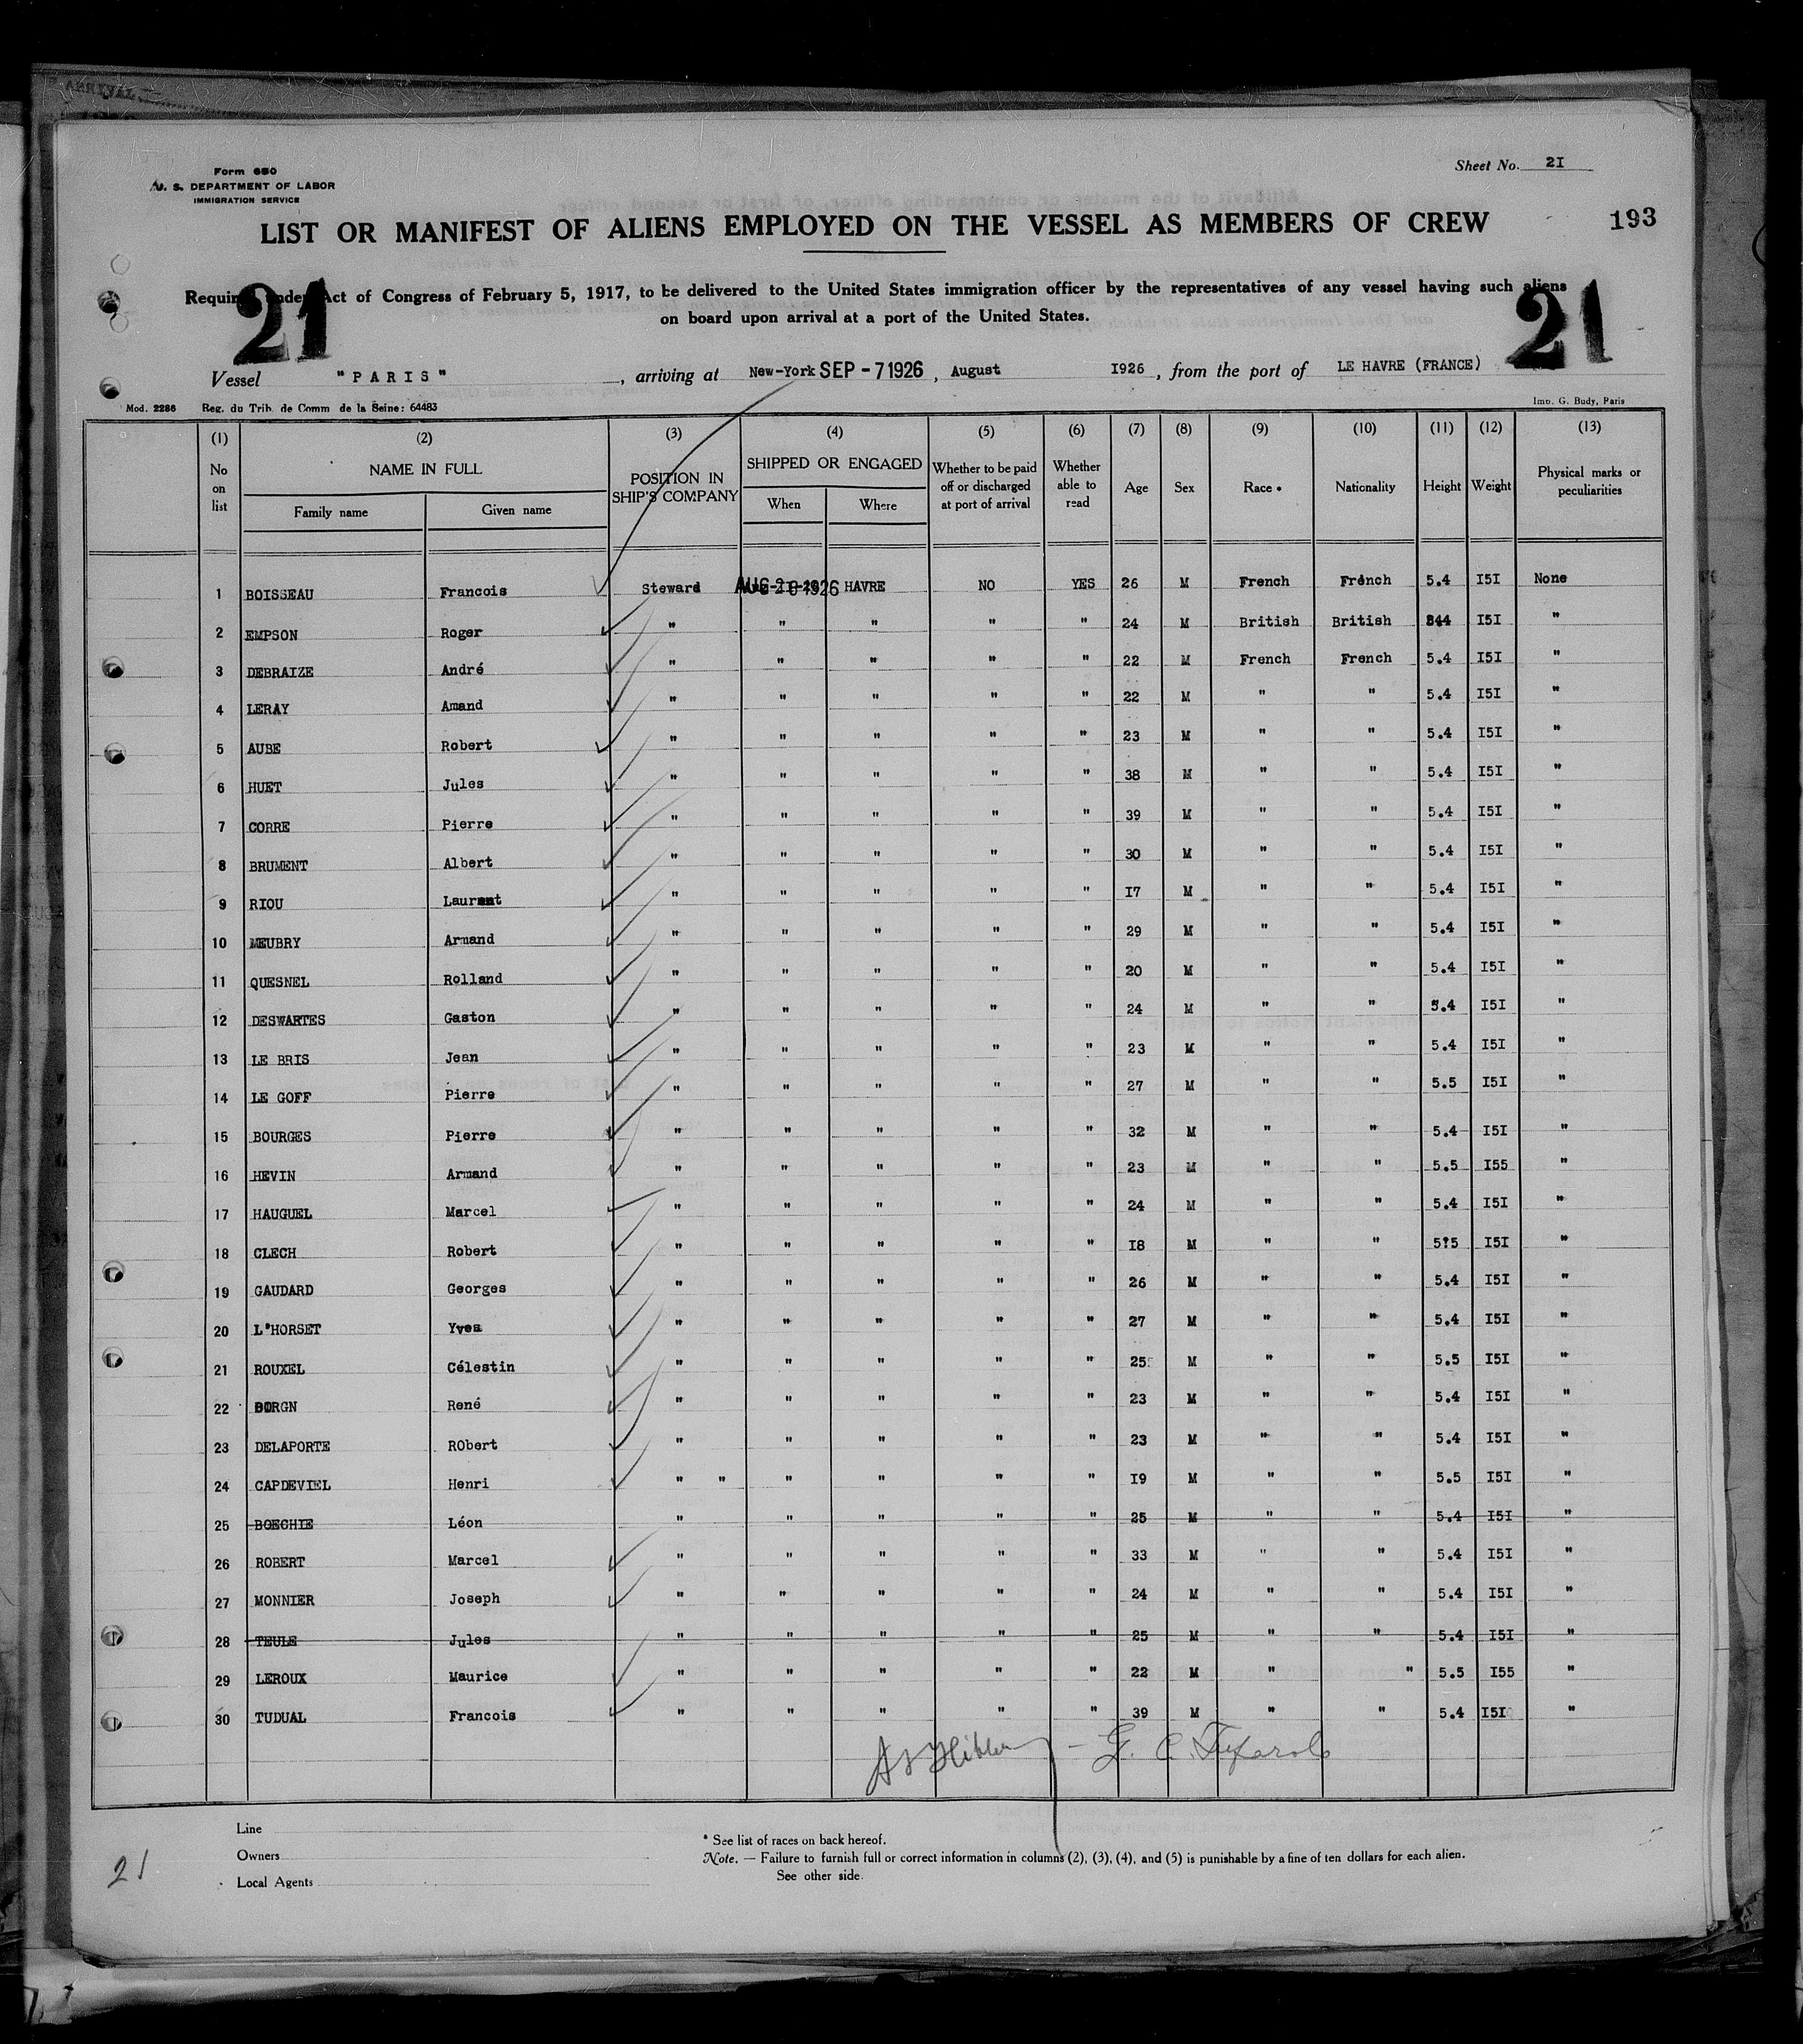 Form 680
U. S. DEPARTMENT OF LABOR
IMMIGRATION SERVICE
Sheet No. 2I
LIST OR MANIFEST OF ALIENS EMPLOYED ON THE VESSEL AS MEMBERS OF CREW
193
21
21
Required under Act of Congress of February 5, 1917, to be delivered to the United States immigration officer by the representatives of any vessel having such aliens
on board upon arrival at a port of the United States.
Vessel "PARIS", arriving at New-York SEP - 7 1926, August I926, from the port of LE HAVRE (FRANCE)
Mod. 2286 Reg. du Trib. de Comm de la Seine: 64483
Imp. G. Budy, Paris
(1) (2) (3) (4) (5) (6) (7) (8) (9) (10) (11) (12) (13)
No on list NAME IN FULL Family name Given name POSITION IN SHIP'S COMPANY SHIPPED OR ENGAGED When Where Whether to be paid off or discharged at port of arrival Whether able to read Age Sex Race • Nationality Height Weight Physical marks or peculiarities
1 BOISSEAU Francois Steward AUG 28 1926 HAVRE NO YES 26 M French French 5.4 I5I None
2 EMPSON Roger " " " " " 24 M British British 544 I5I "
3 DEBRAIZE André " " " " " 22 M French French 5.4 I5I "
4 LERAY Amand " " " " " 22 M " " 5.4 I5I "
5 AUBE Robert " " " " " 23 M " " 5.4 I5I "
6 HUET Jules " " " " " 38 M " " 5.4 I5I "
7 CORRE Pierre " " " " " 39 M " " 5.4 I5I "
8 BRUMENT Albert " " " " " 30 M " " 5.4 I5I "
9 RIOU Laurent " " " " " I7 M " " 5.4 I5I "
10 MEUBRY Armand " " " " " 29 M " " 5.4 I5I "
11 QUESNEL Rolland " " " " " 20 M " " 5.4 I5I "
12 DESWARTES Gaston " " " " " 24 M " " 5.4 I5I "
13 LE BRIS Jean " " " " " 23 M " " 5.4 I5I "
14 LE GOFF Pierre " " " " " 27 M " " 5.5 I5I "
15 BOURGES Pierre " " " " " 32 M " " 5.4 I5I "
16 HEVIN Armand " " " " " 23 M " " 5.5 I55 "
17 HAUGUEL Marcel " " " " " 24 M " " 5.4 I5I "
18 CLECH Robert " " " " " I8 M " " 5?5 I5I "
19 GAUDARD Georges " " " " " 26 M " " 5.4 I5I "
20 L'HORSET Yves " " " " " 27 M " " 5.4 I5I "
21 ROUXEL Célestin " " " " " 25 M " " 5.5 I5I "
22 BORGN René " " " " " 23 M " " 5.4 I5I "
23 DELAPORTE RObert " " " " " 23 M " " 5.4 I5I "
24 CAPDEVIEL Henri " " " " " " I9 M " " 5.5 I5I "
25 BOECHIE Léon " " " " " 25 M " " 5.4 I5I "
26 ROBERT Marcel " " " " " 33 M " " 5.4 I5I "
27 MONNIER Joseph " " " " " 24 M " " 5.4 I5I "
28 TEULE Jules " " " " " 25 M " " 5.4 I5I "
29 LEROUX Maurice " " " " " 22 M " " 5.5 I55 "
30 TUDUAL Francois " " " " " 39 M " " 5.4 I5I "
Line
Owners
Local Agents
* See list of races on back hereof.
Note. — Failure to furnish full or correct information in columns (2), (3), (4), and (5) is punishable by a fine of ten dollars for each alien.
See other side.
21